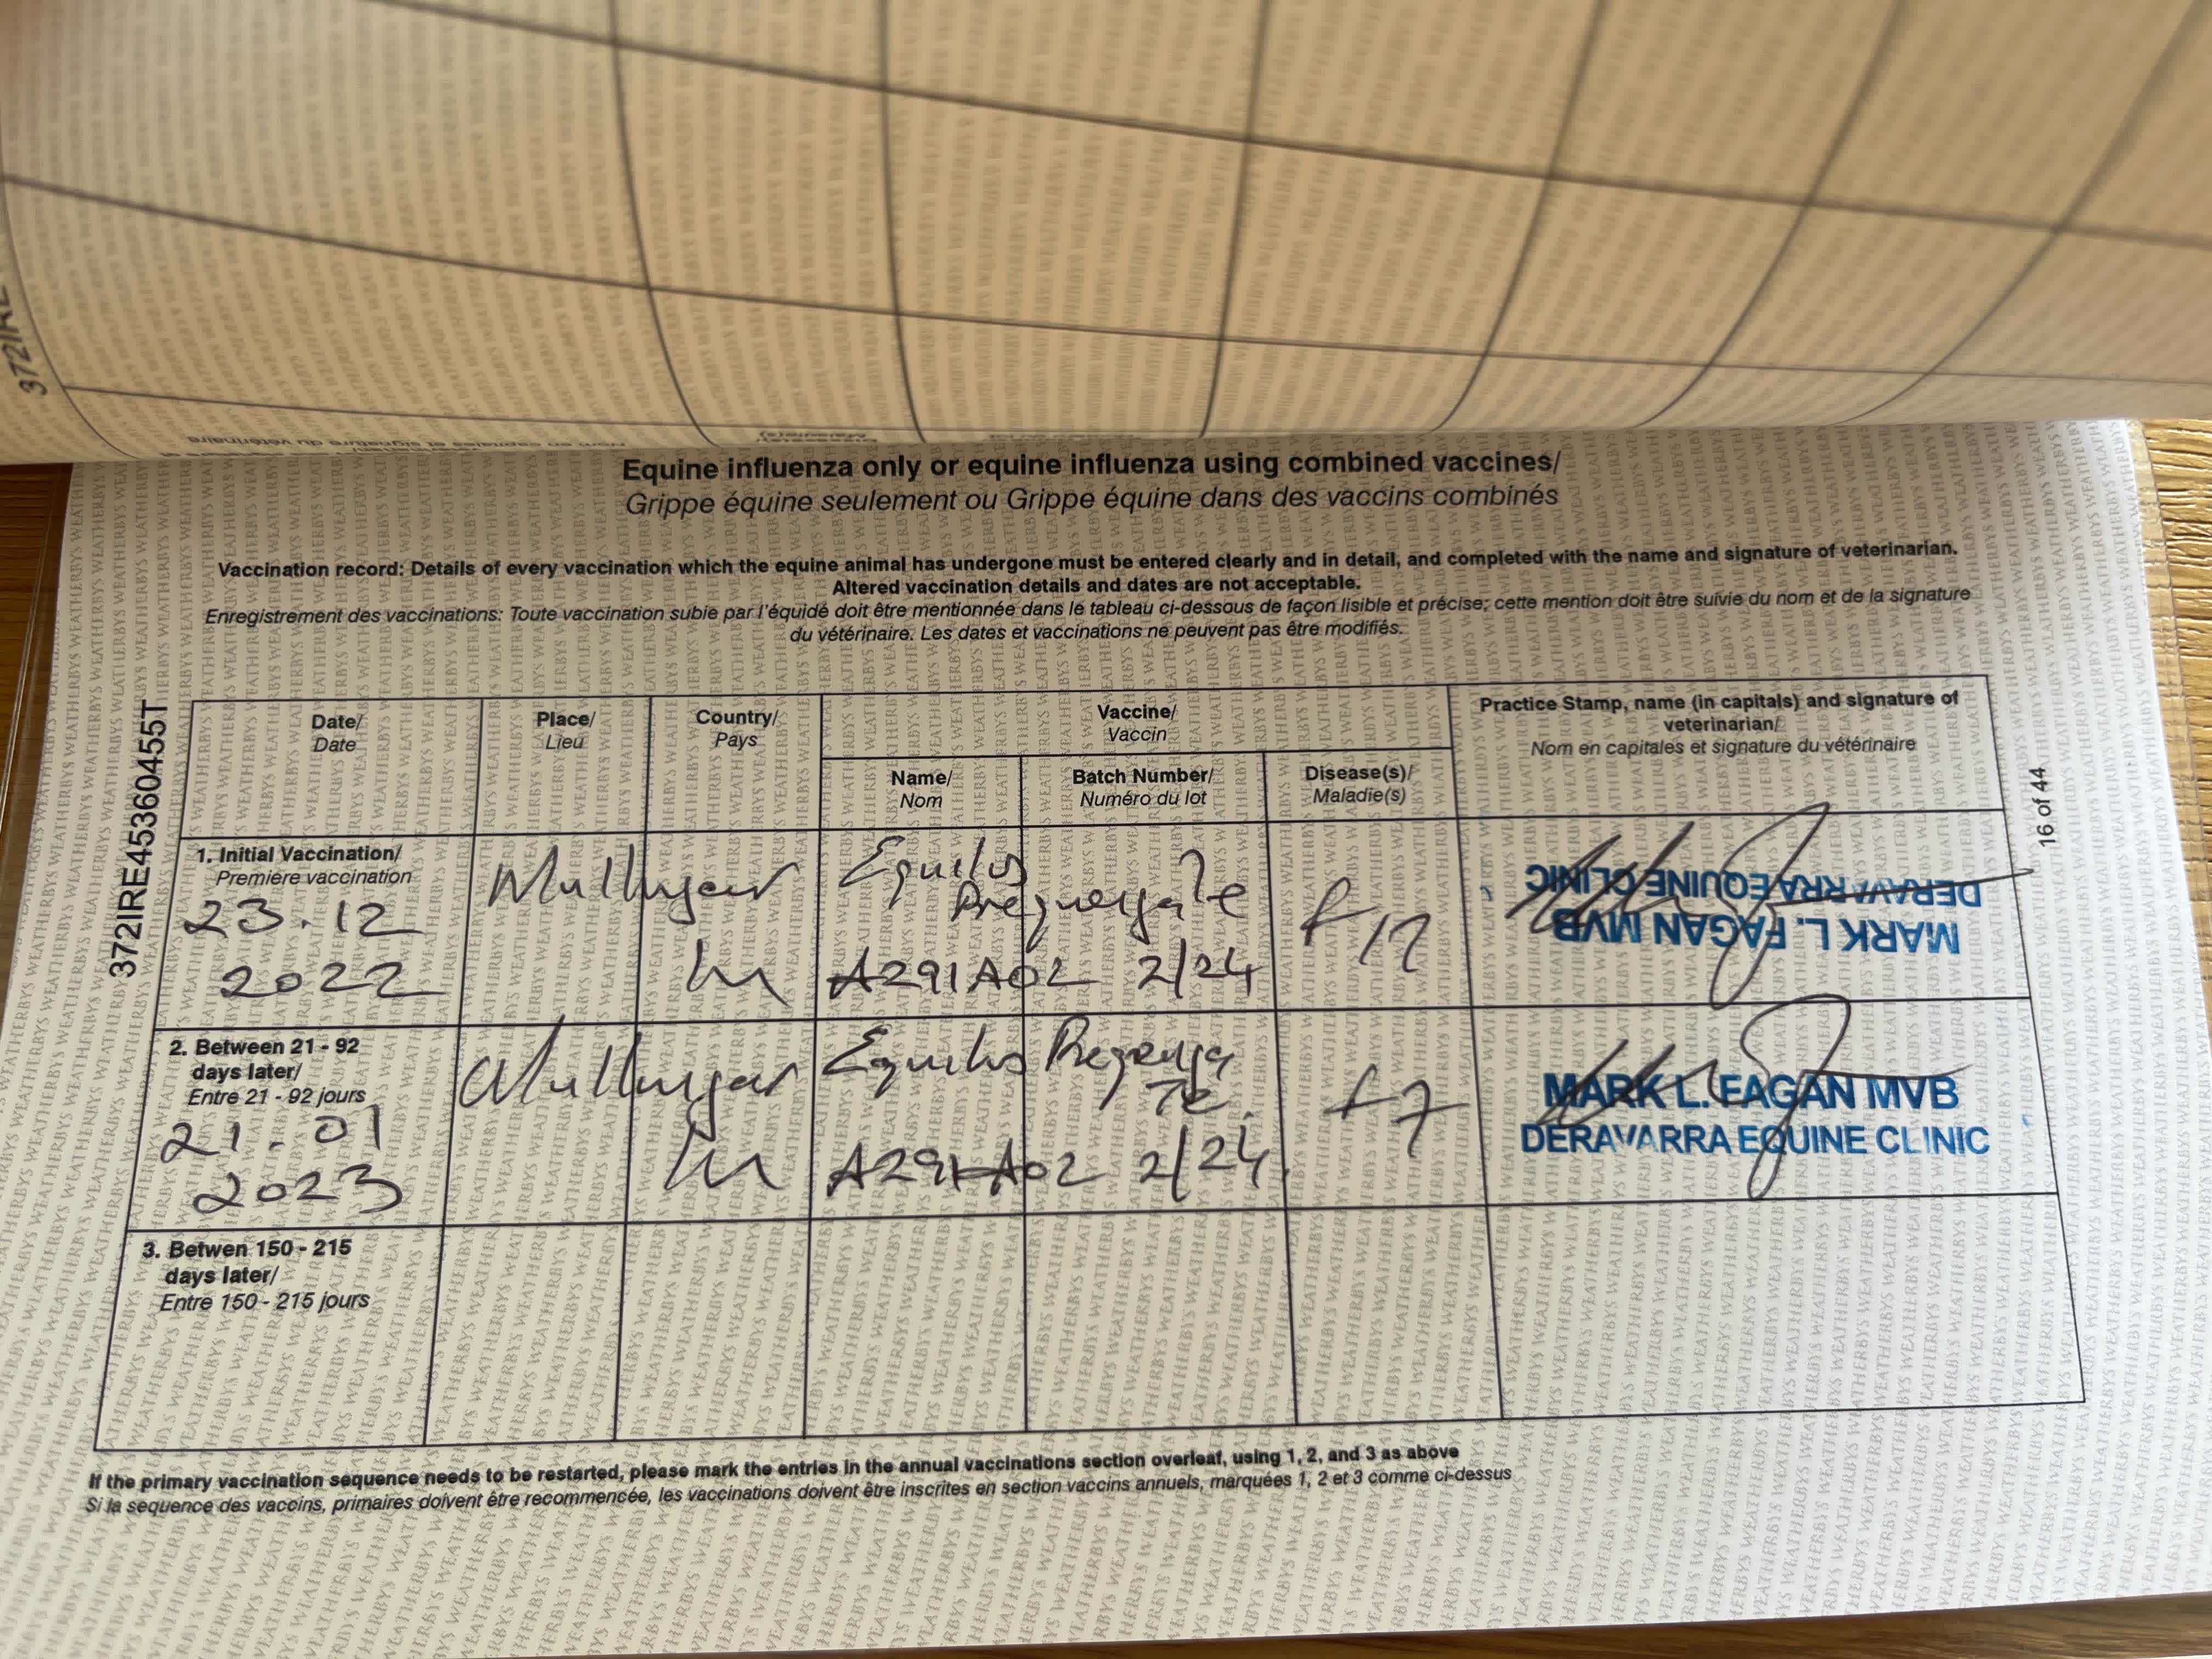 372IRE
Equine influenza only or equine influenza using combined vaccines/
Grippe équine seulement ou Grippe équine dans des vaccins combinés
Vaccination record: Details of every vaccination which the equine animal has undergone must be entered clearly and in detail, and completed with the name and signature of veterinarian.
Altered vaccination details and dates are not acceptable.
Enregistrement des vaccinations: Toute vaccination subie par l'équidé doit être mentionnée dans le tableau ci-dessous de façon lisible et précise; cette mention doit être suivie du nom et de la signature
du vétérinaire. Les dates et vaccinations ne peuvent pas être modifiés.
372IRE45360455T
16 of 44
Date/
Date
Place/
Lieu
Country/
Pays
Vaccine/
Vaccin
Name/
Nom
Batch Number/
Numéro du lot
Disease(s)/
Maladie(s)
Practice Stamp, name (in capitals) and signature of
veterinarian/
Nom en capitales et signature du vétérinaire
1. Initial Vaccination/
Premiere vaccination
23.12
2022
Mullingar
Equilis
Prequenza Te
A291A02 2/24
MARK L. FAGAN MVB
DERAVARRA EQUINE CLINIC
2. Between 21 - 92
days later/
Entre 21 - 92 jours
21.01
2023
Mullingar
Equilis Prequenza
Te.
A291A02 2/24
MARK L. FAGAN MVB
DERAVARRA EQUINE CLINIC
3. Betwen 150 - 215
days later/
Entre 150 - 215 jours
If the primary vaccination sequence needs to be restarted, please mark the entries in the annual vaccinations section overleaf, using 1, 2, and 3 as above
Si la sequence des vaccins, primaires doivent être recommencée, les vaccinations doivent être inscrites en section vaccins annuels, marquées 1, 2 et 3 comme ci-dessus